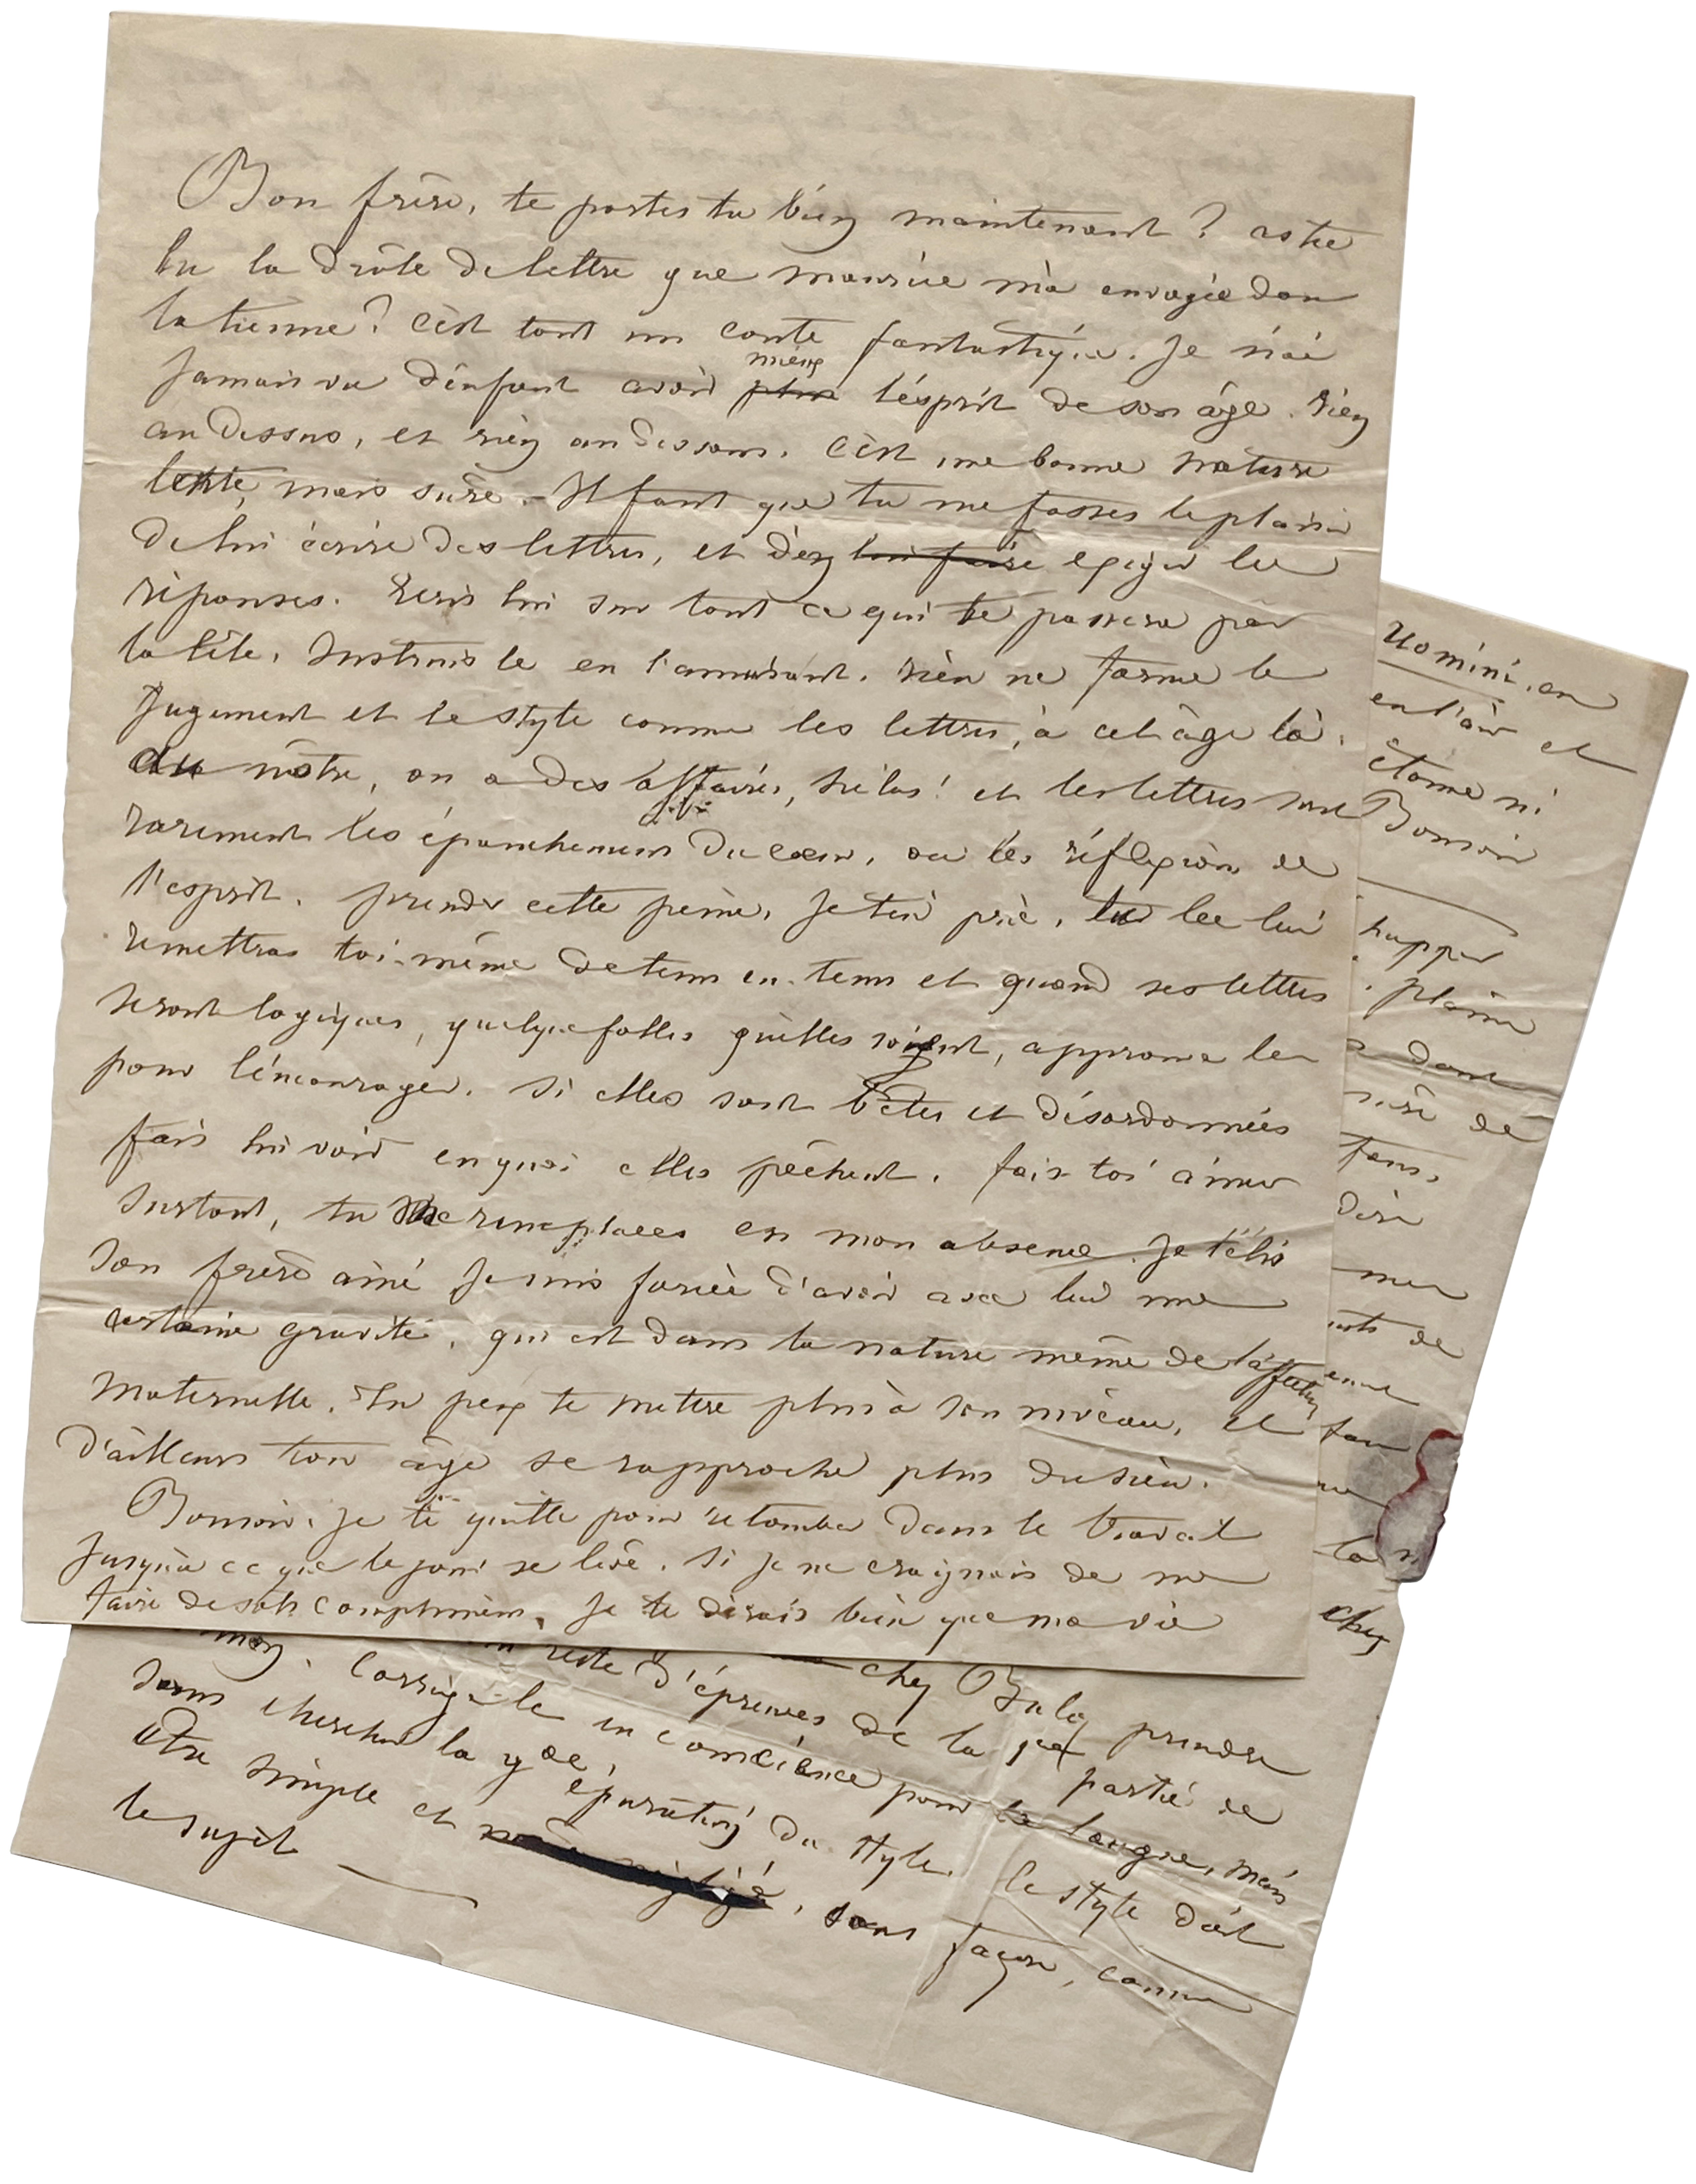 Bon frère, te portes tu bien maintenant ? as tu
lu la drôle de lettre que maurice m'a envoyée dans
la tienne ? C'est tout un conte fantastique. Je n'ai
jamais vu d'enfant avoir plus mieux l'esprit de son âge. rien
au dessus, et rien au dessous. C'est une bonne nature
lente, mais sûre. - Il faut que tu me fasses le plaisir
de lui écrire des lettres, et d'en lui faire exiger les
réponses. Ecris lui sur tout ce qui te passera par
la tête. Instruis le en l'amusant. rien ne forme le
jugement et le style comme les lettres, à cet âge là.
Au nôtre, on a des affaires, hélas ! et les lettres sont
rarement les épanchemens du cœur, ou les réflexions de
l'esprit. prends cette peine, je t'en prie, tu les lui
remettras toi-même de tems en tems et quand ses lettres
seront logiques, quelque folles qu'elles soient, approuve les
pour l'encourager. Si elles sont bêtes et désordonnées
fais lui voir en quoi elles pêchent. fais toi aimer
surtout, tu me remplaces en mon absence. Je t'élis
son frère aîné je suis forcée d'avoir avec lui une
certaine gravité, qui est dans la nature même de l'affection
maternelle. Tu peux te mettre plus à son niveau, et
d'ailleurs ton âge se rapproche plus du sien.
Bonsoir. je te quitte pour retomber dans le travail
jusqu'à ce que le jour se lève. Si je ne craignais de me
faire de sots complimens, je te dirais bien que ma vie
Uomini, on
en l'air et
étonne ni
Bonsoir
plaine
dont
de
dire
me
de
la
chez
chez Buloz prendre
reste d'épreuves de la partie de
mon. Corrige-le en conscience pour la langue, mais
sans chercher la gde épuration du style. le style doit
être simple et négligé, sans façon, comme
le sujet